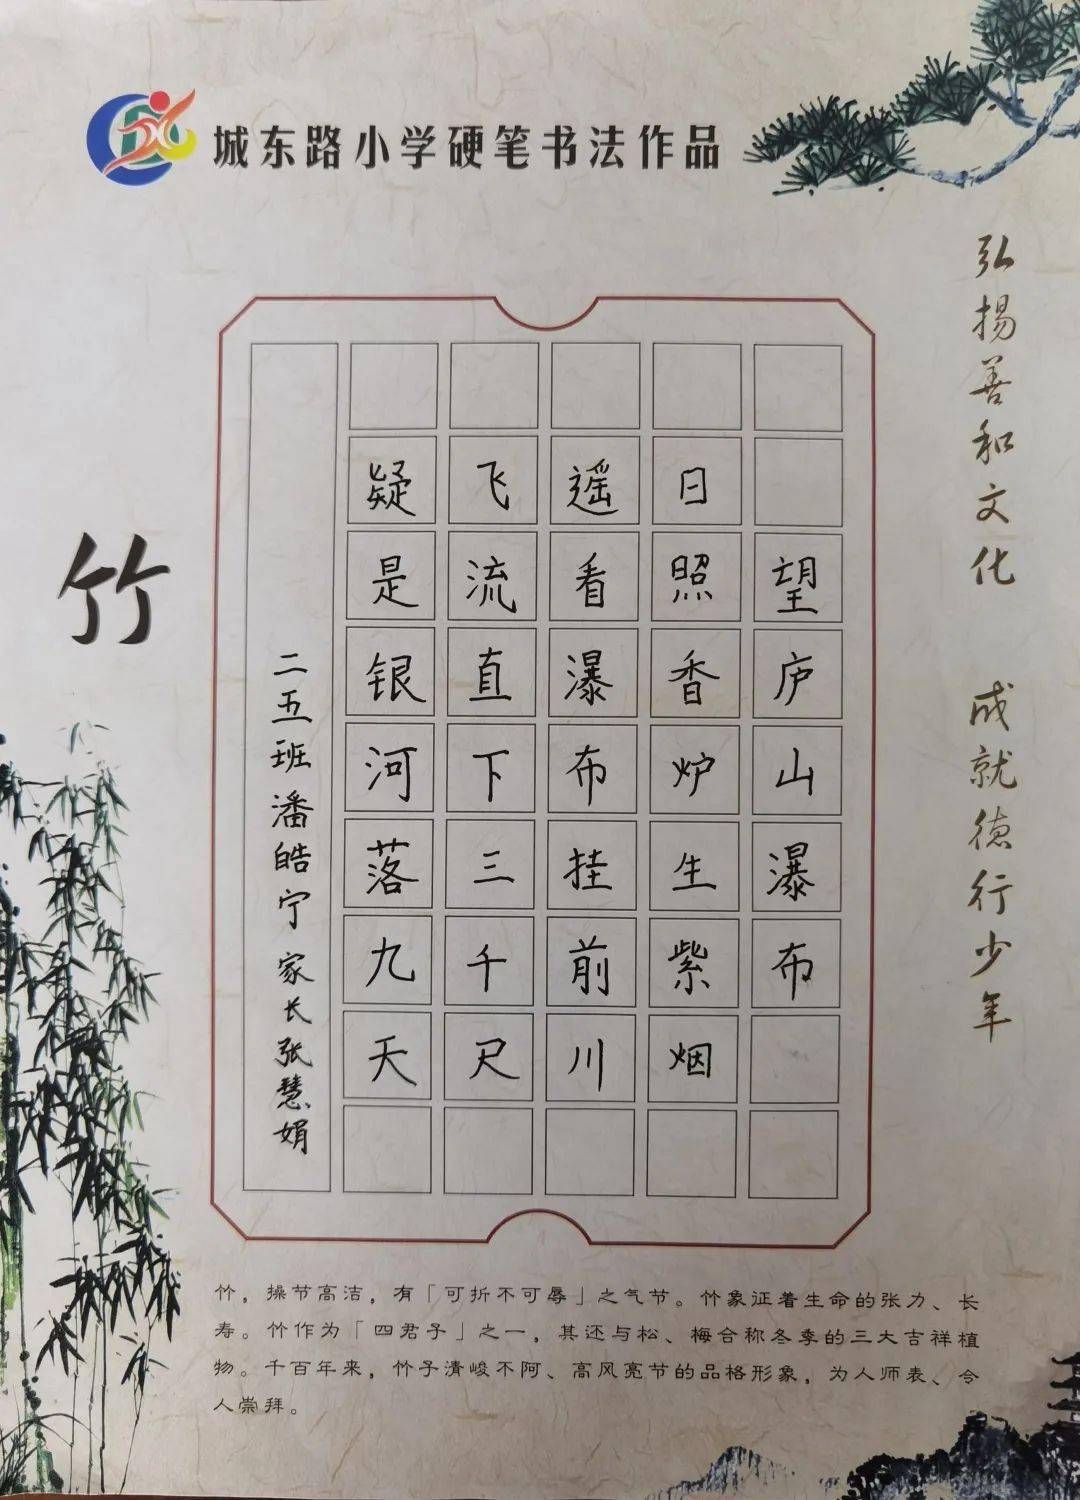 城东路小学硬笔书法作品
弘扬善和文化 成就德行少年
竹
望庐山瀑布
日照香炉生紫烟
遥看瀑布挂前川
飞流直下三千尺
疑是银河落九天
二五班潘皓宁家长张慧娟
竹，操节高洁，有「可折不可辱」之气节。竹象证着生命的张力、长
寿。竹作为「四君子」之一，其还与松、梅合称冬季的三大吉祥植
物。千百年来，竹子清峻不阿、高风亮节的品格形象，为人师表、令
人崇拜。